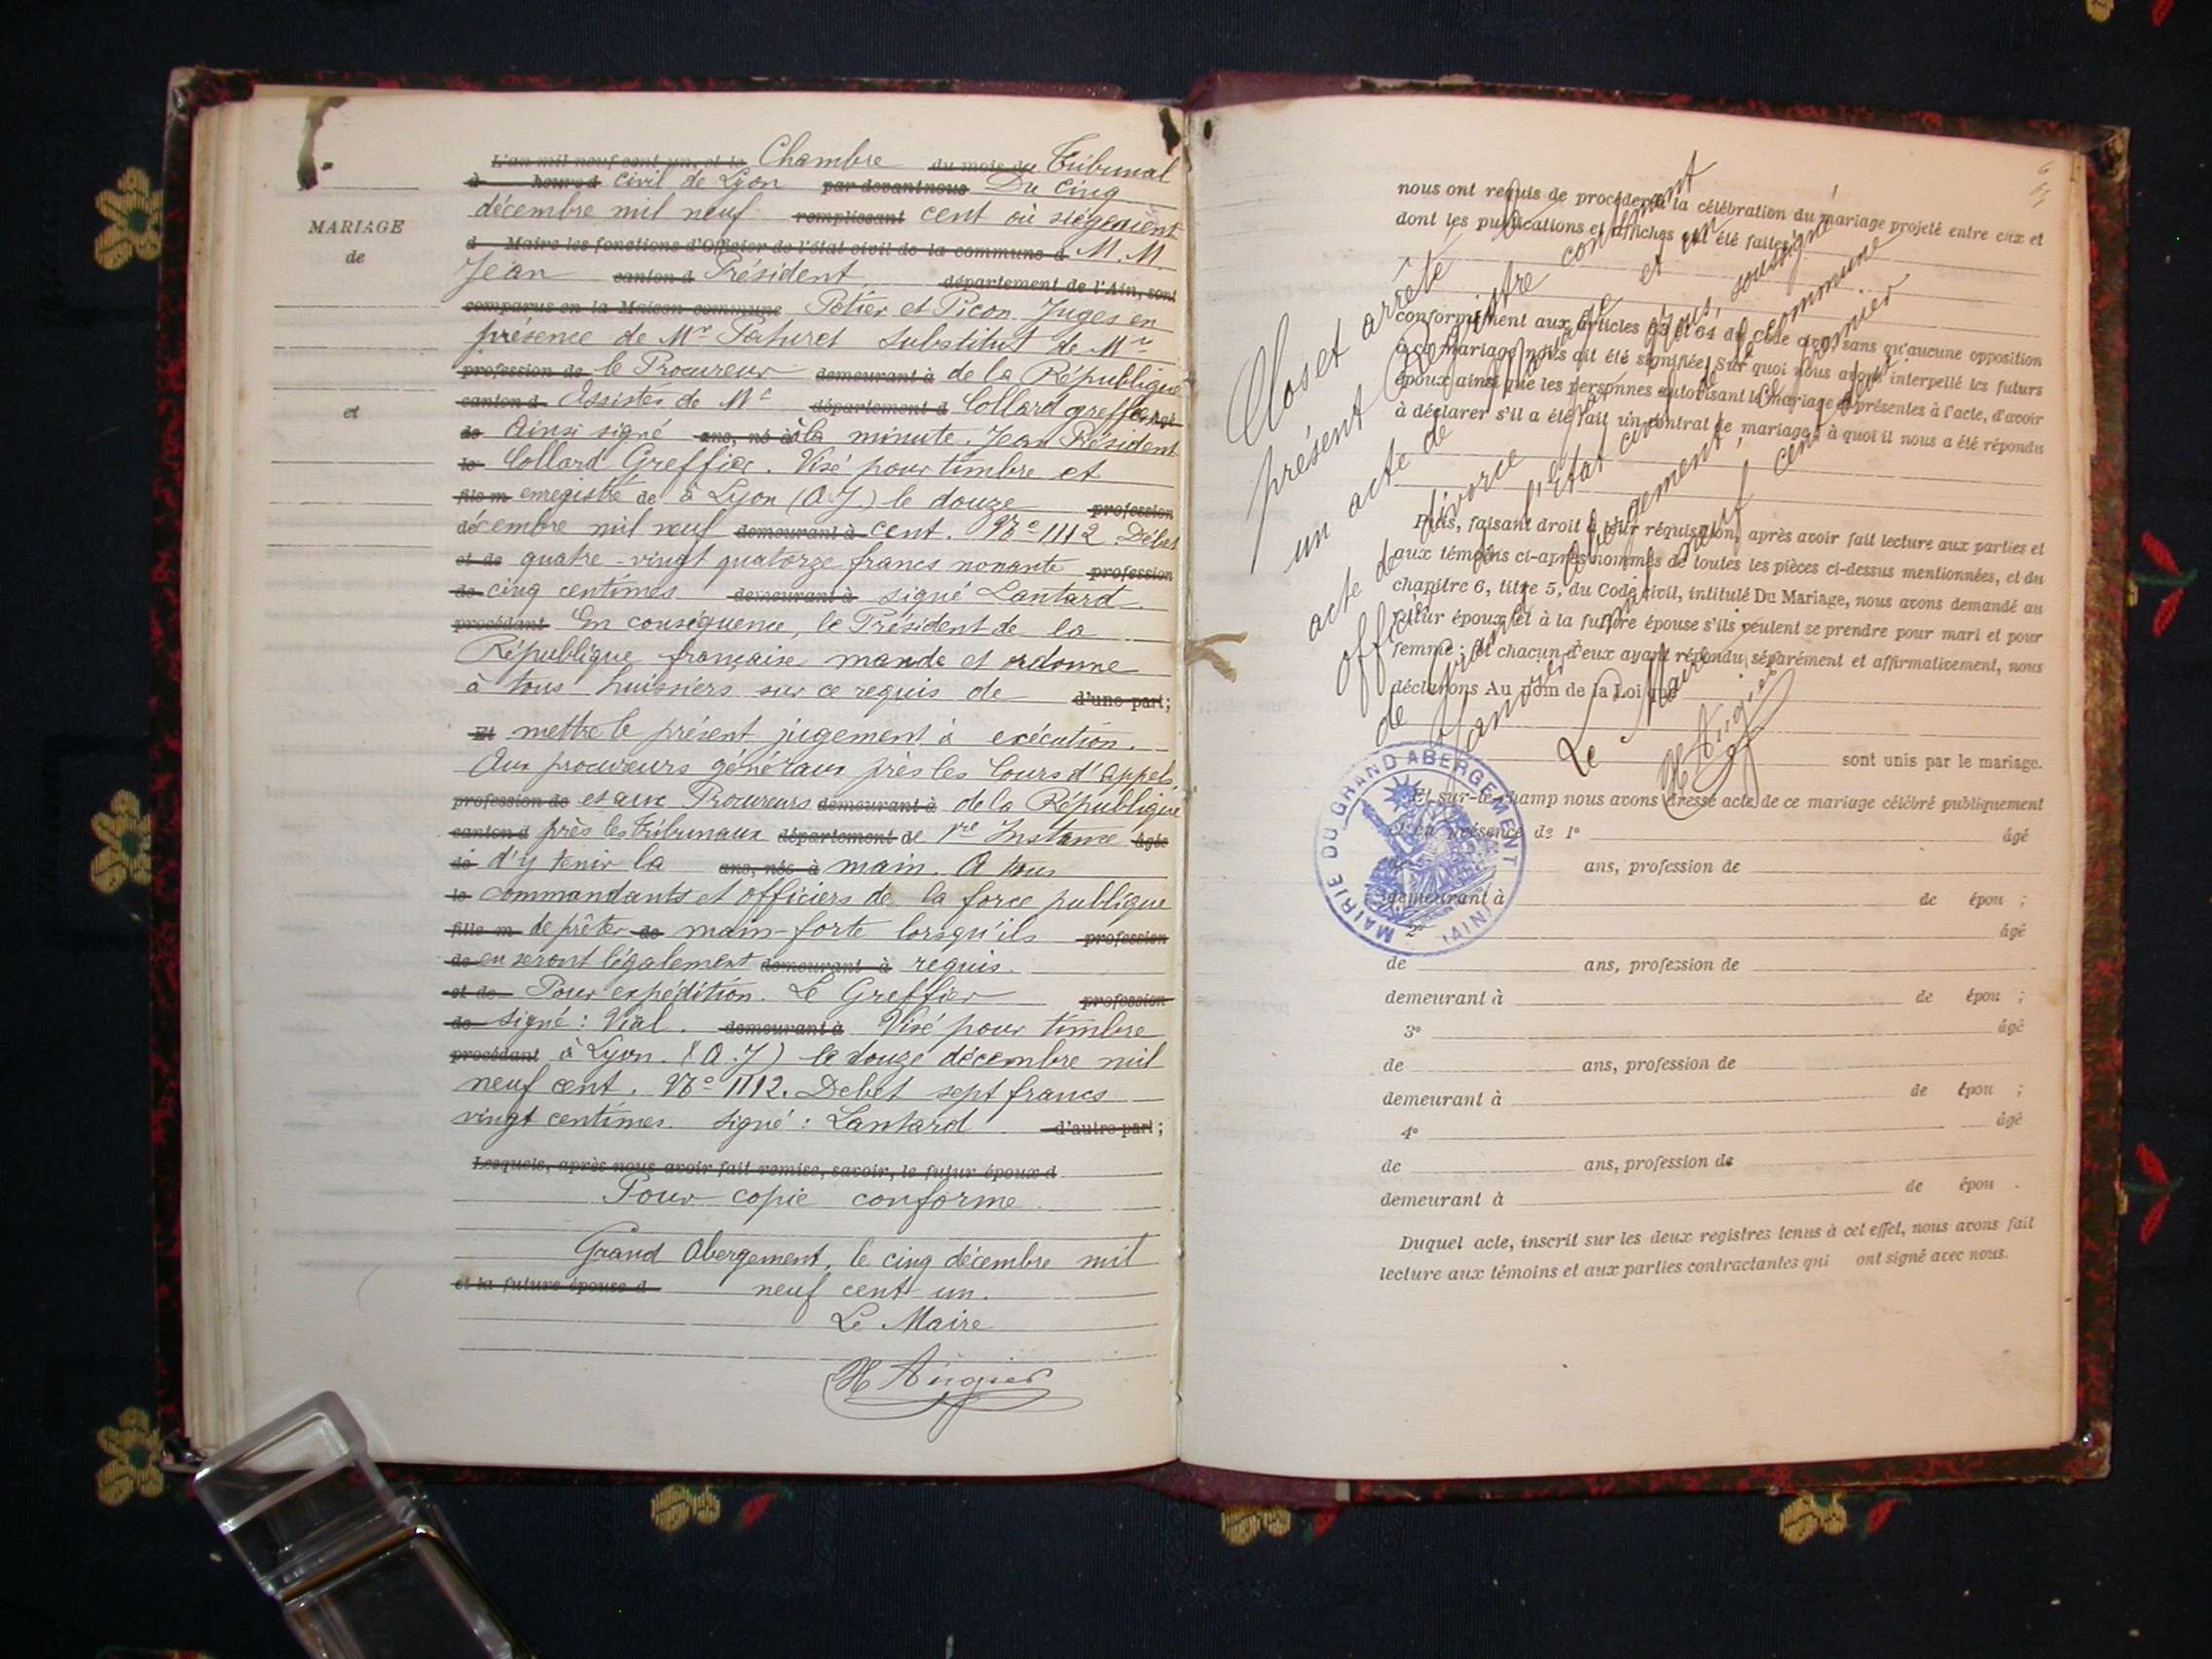 MARIAGE
de
et
L'an mil neuf cent un, et le Chambre du mois de Tribunal
à heure d civil de Lyon par devant nous Du cinq
décembre mil neuf remplissant cent où siégeaient
d Maire les fonctions d'Officier de l'état civil de la commune d M. M.
Jean canton d Président département de l'Ain, sont
comparus en la Maison commune Potier et Picon Juges en
présence de Mr Paturet Substitut de Mr
profession de le Procureur demeurant à de la République
canton d Assistés de Me département d Collard greffier âgé
de Ainsi signé ans, né à à la minute. Jean Président
le Collard Greffier. Visé pour timbre et
fils m enregistré de à Lyon (A.J.) le douze profession
décembre mil neuf demeurant à cent. No 1112 Débet
et de quatre-vingt quatorze francs nonante profession
de cinq centimes demeurant à signé Lantard.
procédant En conséquence, le Président de la
République française mande et ordonne
à tous huissiers sur ce requis de d'une part;
Et mettre le présent jugement à exécution.
Aux procureurs généraux près les Cours d'Appel,
profession de et aux Procureurs demeurant à de la République
canton d près les tribunaux département de 1re Instance âgée
de d'y tenir la ans, née à main. A tous
le commandants et officiers de la force publique
fille m de prêter de main-forte lorsqu'ils profession
de en seront légalement demeurant à requis.
et de Pour expédition. Le Greffier profession
de signé: Vial. demeurant à Visé pour timbre
procédant à Lyon. (A.J) le douze décembre mil
neuf cent. No 1112. Debet sept francs
vingt centimes. signé: Lantard d'autre part;
Lesquels, après nous avoir fait remise, savoir, le futur époux d
Pour copie conforme
Grand Abergement, le cinq décembre mil
et la future épouse d neuf cent un.
Le Maire
H Augier
nous ont requis de procéder à la célébration du mariage projeté entre eux et
dont les publications et affiches ont été faites
conformément aux articles 63 et 64 du Code civil sans qu'aucune opposition
à ce mariage nous ait été signifiée. Sur quoi nous avons interpellé les futurs
époux ainsi que les personnes autorisant le mariage et présentes à l'acte, d'avoir
à déclarer s'il a été fait un contrat de mariage, à quoi il nous a été répondu
Puis, faisant droit à leur réquisition, après avoir fait lecture aux parties et
aux témoins ci-après nommés de toutes les pièces ci-dessus mentionnées, et du
chapitre 6, titre 5, du Code civil, intitulé Du Mariage, nous avons demandé au
futur époux et à la future épouse s'ils veulent se prendre pour mari et pour
femme; et chacun d'eux ayant répondu séparément et affirmativement, nous
déclarons Au nom de la Loi que
sont unis par le mariage.
Et sur-le-champ nous avons dressé acte de ce mariage célébré publiquement
et en présence de 1° âgé
de ans, profession de
demeurant à de épou ;
2° âgé
de ans, profession de
demeurant à de épou ;
3° âgé
de ans, profession de
demeurant à de épou ;
4° âgé
de ans, profession de
demeurant à de épou .
Duquel acte, inscrit sur les deux registres tenus à cet effet, nous avons fait
lecture aux témoins et aux parties contractantes qui ont signé avec nous.
Clos et arrêté le
présent Registre contenant
un acte de mariage et un
acte de divorce par nous, soussigné
officier de l'Etat civil de la commune
de Grand Abergement, ce premier
Janvier mil neuf cent deux
Le Maire
H Augier
MAIRIE DU GRAND ABERGEMENT (AIN)